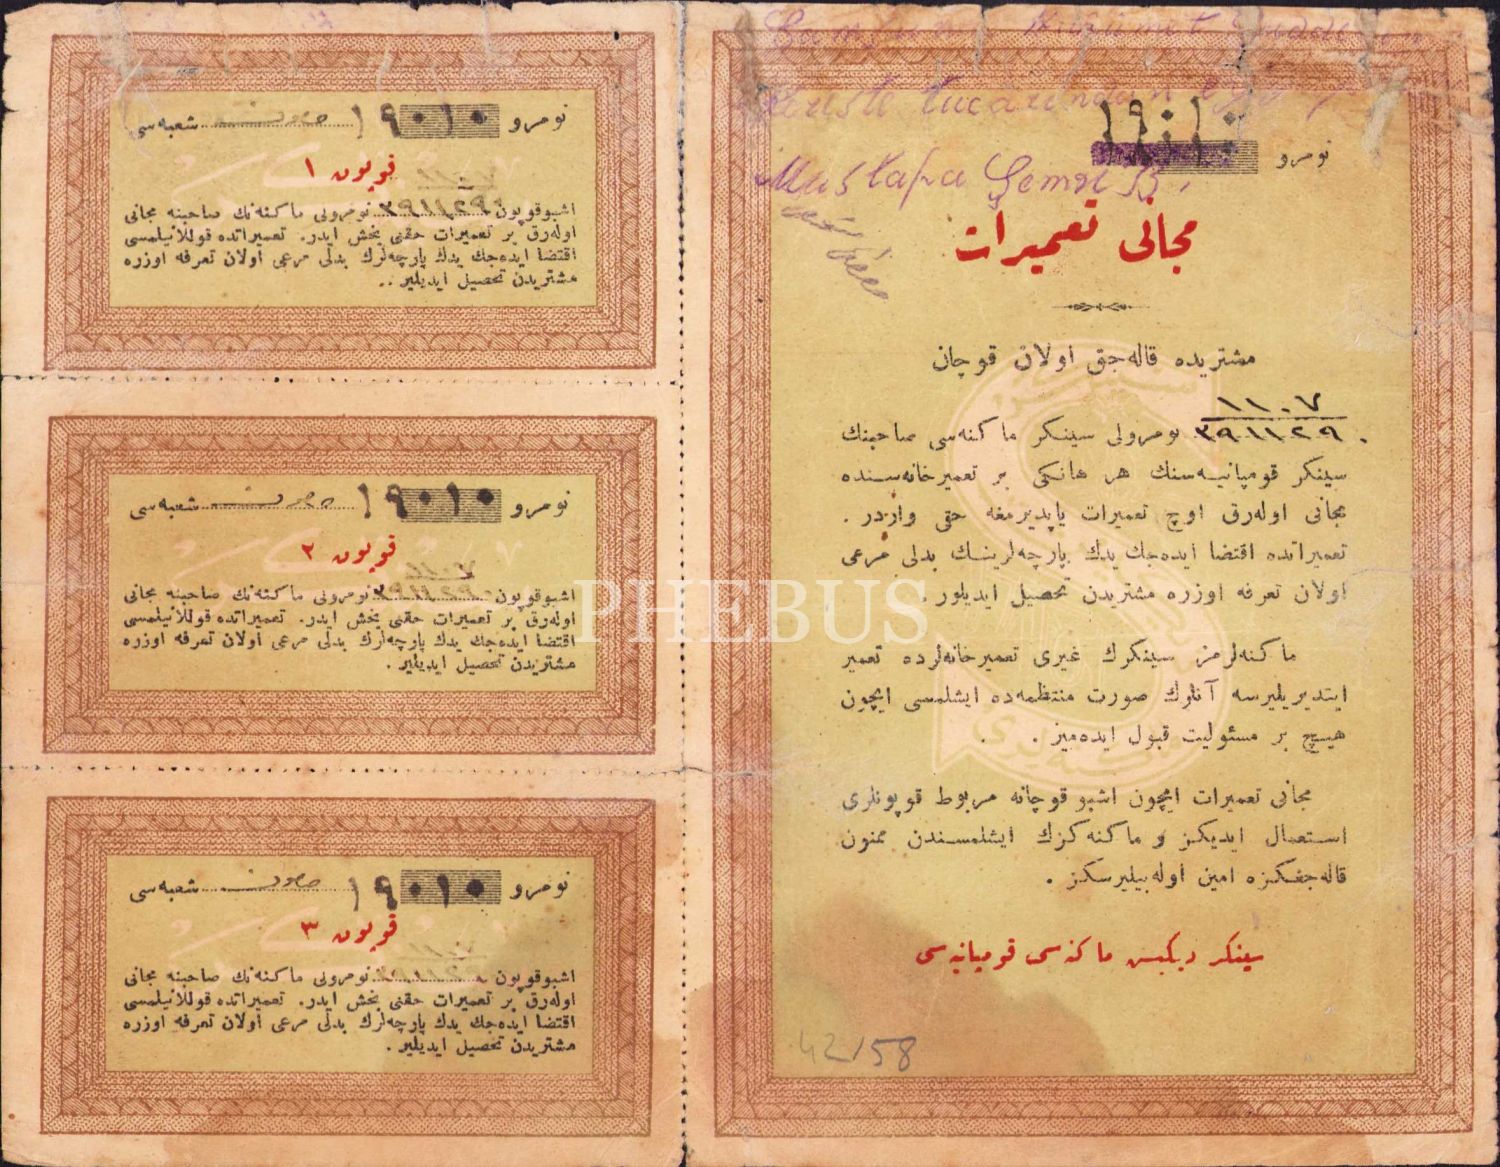 نومرو ١٩٠١٠
Mustafa Şemsi B.
مجانی تعمیرات
مشتریده قاله‌جق اولان قوچان
١١٠٧
٣٩١١٢٩٠ نومرولی سینکر ماکنه‌سی صاحبنك
سینکر قومپانیه‌سنك هر هانکی بر تعمیرخانه‌سنده
مجانی اوله‌رق اوچ تعمیرات یاپدیرمغه حقی واردر.
تعمیراتده اقتضا ایده‌جك یدك پارچه‌لرینك بدلی مرعی
اولان تعرفه اوزره مشتریدن تحصیل ایدیلور.
ماکنه‌لرمز سینکرك غیری تعمیرخانه‌لرده تعمیر
ایتدیریلیرسه آنلرك صورت منتظمه‌ده ایشلمسی ایچون
هیچ بر مسئولیت قبول ایده‌میز.
مجانی تعمیرات ایچون اشبو قوچانه مربوط قوپونلری
استعمال ایدیکز و ماکنه‌کزك ایشلمسندن ممنون
قاله‌جغکزه امین اوله‌بیلیرسکز.
سینکر دیکیش ماکنه‌سی قومپانیه‌سی
42/58
نومرو ١٩٠١٠ شعبه‌سی
قوپون ١
اشبو قوپون ٣٩١١٢٩٠ نومرولی ماکنه‌نك صاحبنه مجانی
اوله‌رق بر تعمیرات حقنی بخش ایدر. تعمیراتده قوللانیلمسی
اقتضا ایده‌جك یدك پارچه‌لرك بدلی مرعی اولان تعرفه اوزره
مشتریدن تحصیل ایدیلیر..
نومرو ١٩٠١٠ شعبه‌سی
قوپون ٢
اشبو قوپون نومرولی ماکنه‌نك صاحبنه مجانی
اوله‌رق بر تعمیرات حقنی بخش ایدر. تعمیراتده قوللانیلمسی
اقتضا ایده‌جك یدك پارچه‌لرك بدلی مرعی اولان تعرفه اوزره
مشتریدن تحصیل ایدیلیر.
نومرو ١٩٠١٠ شعبه‌سی
قوپون ٣
اشبو قوپون نومرولی ماکنه‌نك صاحبنه مجانی
اوله‌رق بر تعمیرات حقنی بخش ایدر. تعمیراتده قوللانیلمسی
اقتضا ایده‌جك یدك پارچه‌لرك بدلی مرعی اولان تعرفه اوزره
مشتریدن تحصیل ایدیلیر.
PHEBUS